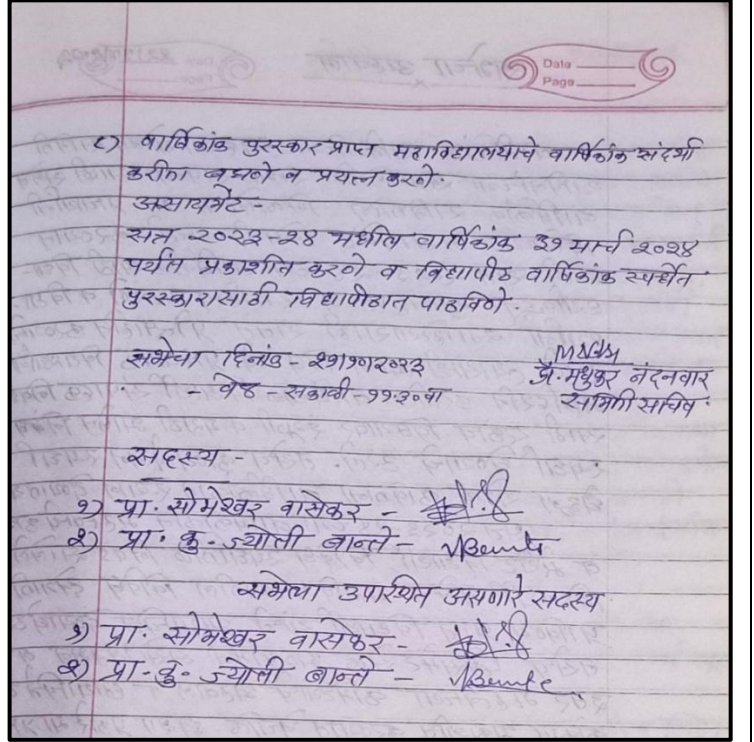 Date
Page
८) वार्षिकांक पुरस्कार प्राप्त महाविद्यालयाचे वार्षिकांक संदर्भा
करीता बघणे व प्रयत्न करणे.
असायमेंट -
सत्र २०२३-२४ मधील वार्षिकांक ३१ मार्च २०२४
पर्यंत प्रकाशीत करणे व विद्यापीठ वार्षिकांक स्पर्धेत
पुरस्कारासाठी विद्यापीठात पाठविणे.
सभेचा दिनांक -
प्रा. मधुकर नंदनवार
- वेळ - सकाळी - ११.३० वा
समिती सचिव
सदस्य -
१) प्रा. सोमेश्वर वासेकर -
२) प्रा. कु. ज्योती बान्ते -
सभेला उपस्थित असणारे सदस्य
१) प्रा. सोमेश्वर वासेकर -
२) प्रा. कु. ज्योती बान्ते -